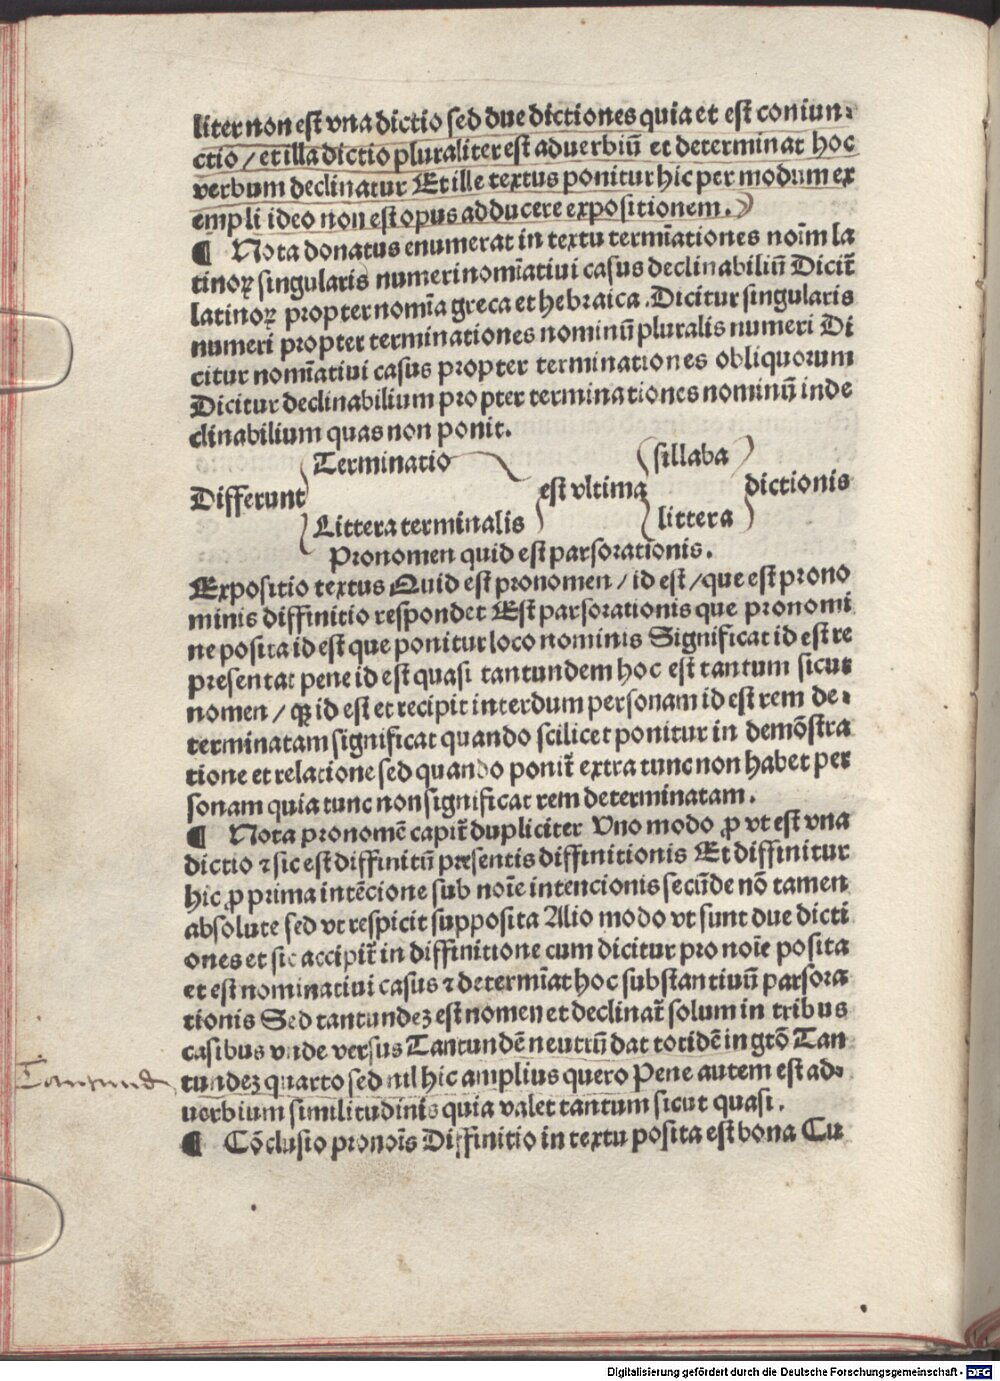 liter non est vna dictio sed due dictiones quia et est coniun⸗
ctio / et illa dictio pluraliter est aduerbiū et determinat hoc
verbum declinatur Et ille textus ponitur hic per modum ex
empli ideo non est opus adducere expositionem.
¶ Nota donatus enumerat in textu termīationes noīm la
tinoꝝ singularis numeri nomīatiui casus declinabiliū Dicit̄
latinoꝝ propter nomīa greca et hebraica. Dicitur singularis
numeri propter terminationes nominū pluralis numeri Di
citur nomīatiui casus propter terminationes obliquorum
Dicitur declinabilium propter terminationes nominū inde
clinabilium quas non ponit.
Terminatio sillaba
Differunt est vltima dictionis
Littera terminalis littera
Pronomen quid est pars orationis.
Expositio textus Quid est pronomen / id est / que est prono
minis diffinitio respondet Est pars orationis que pronomi
ne posita id est que ponitur loco nominis Significat id est re
presentat pene id est quasi tantundem hoc est tantum sicut
nomen / qꝫ id est et recipit interdum personam id est rem de⸗
terminatam significat quando scilicet ponitur in demōstra
tione et relatione sed quando ponit̄ extra tunc non habet per
sonam quia tunc non significat rem determinatam.
¶ Nota pronomē capit̄ dupliciter Uno modo ꝓ vt est vna
dictio ⁊ sic est diffinitū presentis diffinitionis Et diffinitur
hic ꝓ prima intēcione sub noīe intencionis secūde nō tamen
absolute sed vt respicit supposita Alio modo vt sunt due dicti
ones et sic accipit̄ in diffinitione cum dicitur pro noīe posita
et est nominatiui casus ⁊ determīat hoc substantiuū pars ora
tionis Sed tantundeꝫ est nomen et declinat̄ solum in tribus
casibus vnde versus Tantundē neutrū dat totidē in gtō Tan
tundeꝫ quarto sed nil hic amplius quero Pene autem est ad⸗
uerbium similitudinis quia valet tantum sicut quasi.
¶ Cōclusio pronoīs Diffinitio in textu posita est bona Cu
Digitalisierung gefördert durch die Deutsche Forschungsgemeinschaft - DFG